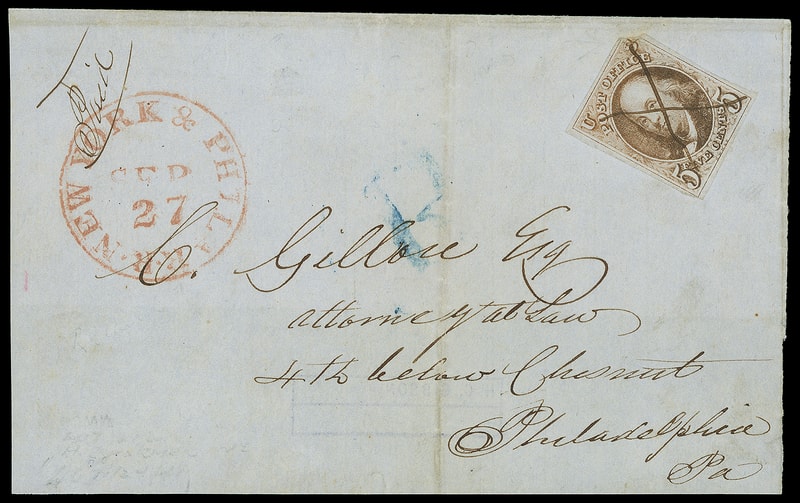 Paid
NEW YORK & PHILA. R.R.
SEP
27
POST OFFICE
5 5
C. Gillou Esq
attorney at Law
4th below Chesnut
Philadelphia
Pa